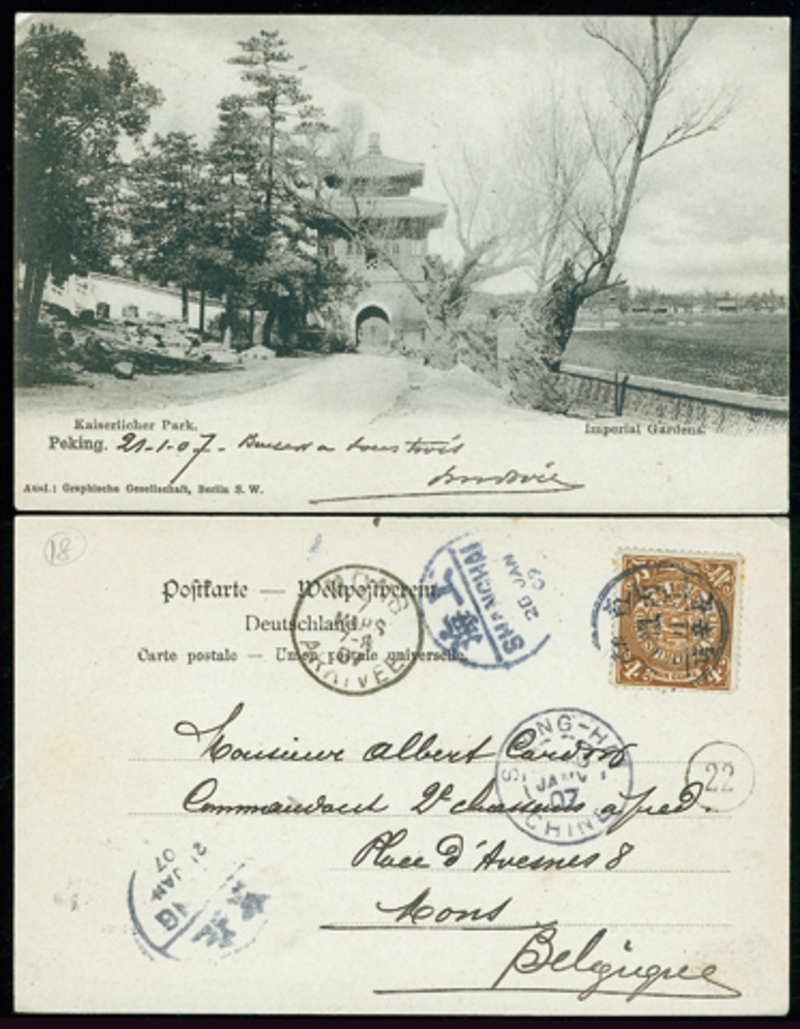 Kaiserlicher Park.
Imperial Gardens.
Peking. 21-1-07- Baisers a tous trois
Ausf.: Graphische Gesellschaft, Berlin S. W.
18
Postkarte — Weltpostverein
Deutschland
Carte postale — Union postale universelle.
MONS
1
MARS
7-8
07
SHANGHAI
26 JAN
07
4
Monsieur Albert Cardon
SHANG-H
JANV
07
CHINE
22
Commandant 2e chasseurs à pied.
Place d'Avesnes 8
Mons
Belgique
21 JAN
07